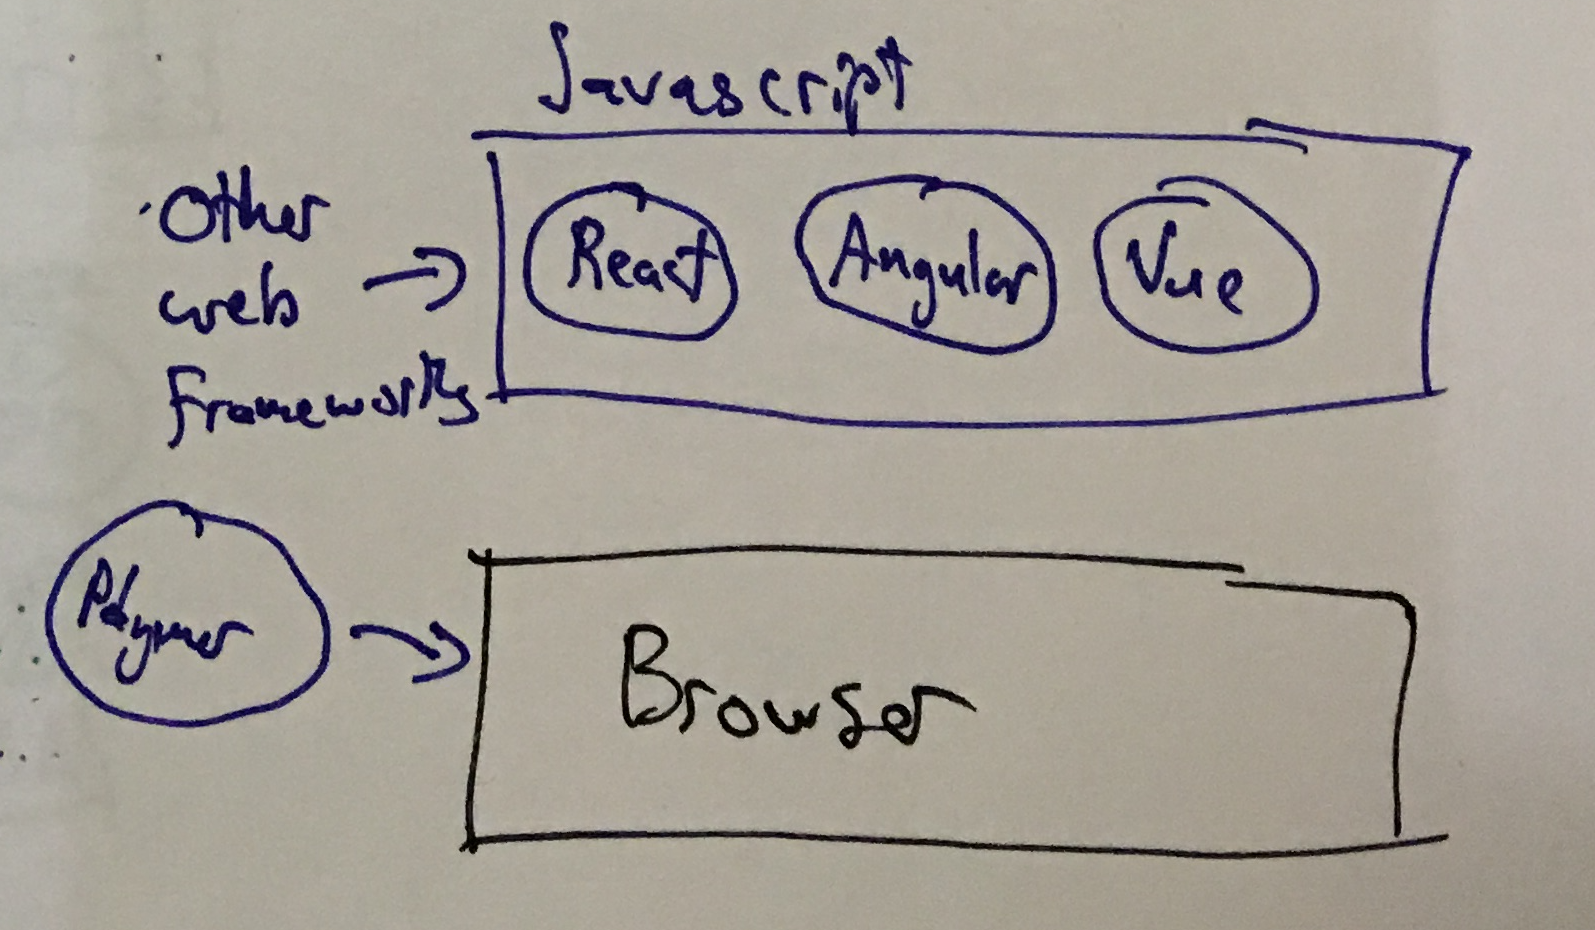 Javascript
Other
web
frameworks
React Angular Vue
Polymer
Browser